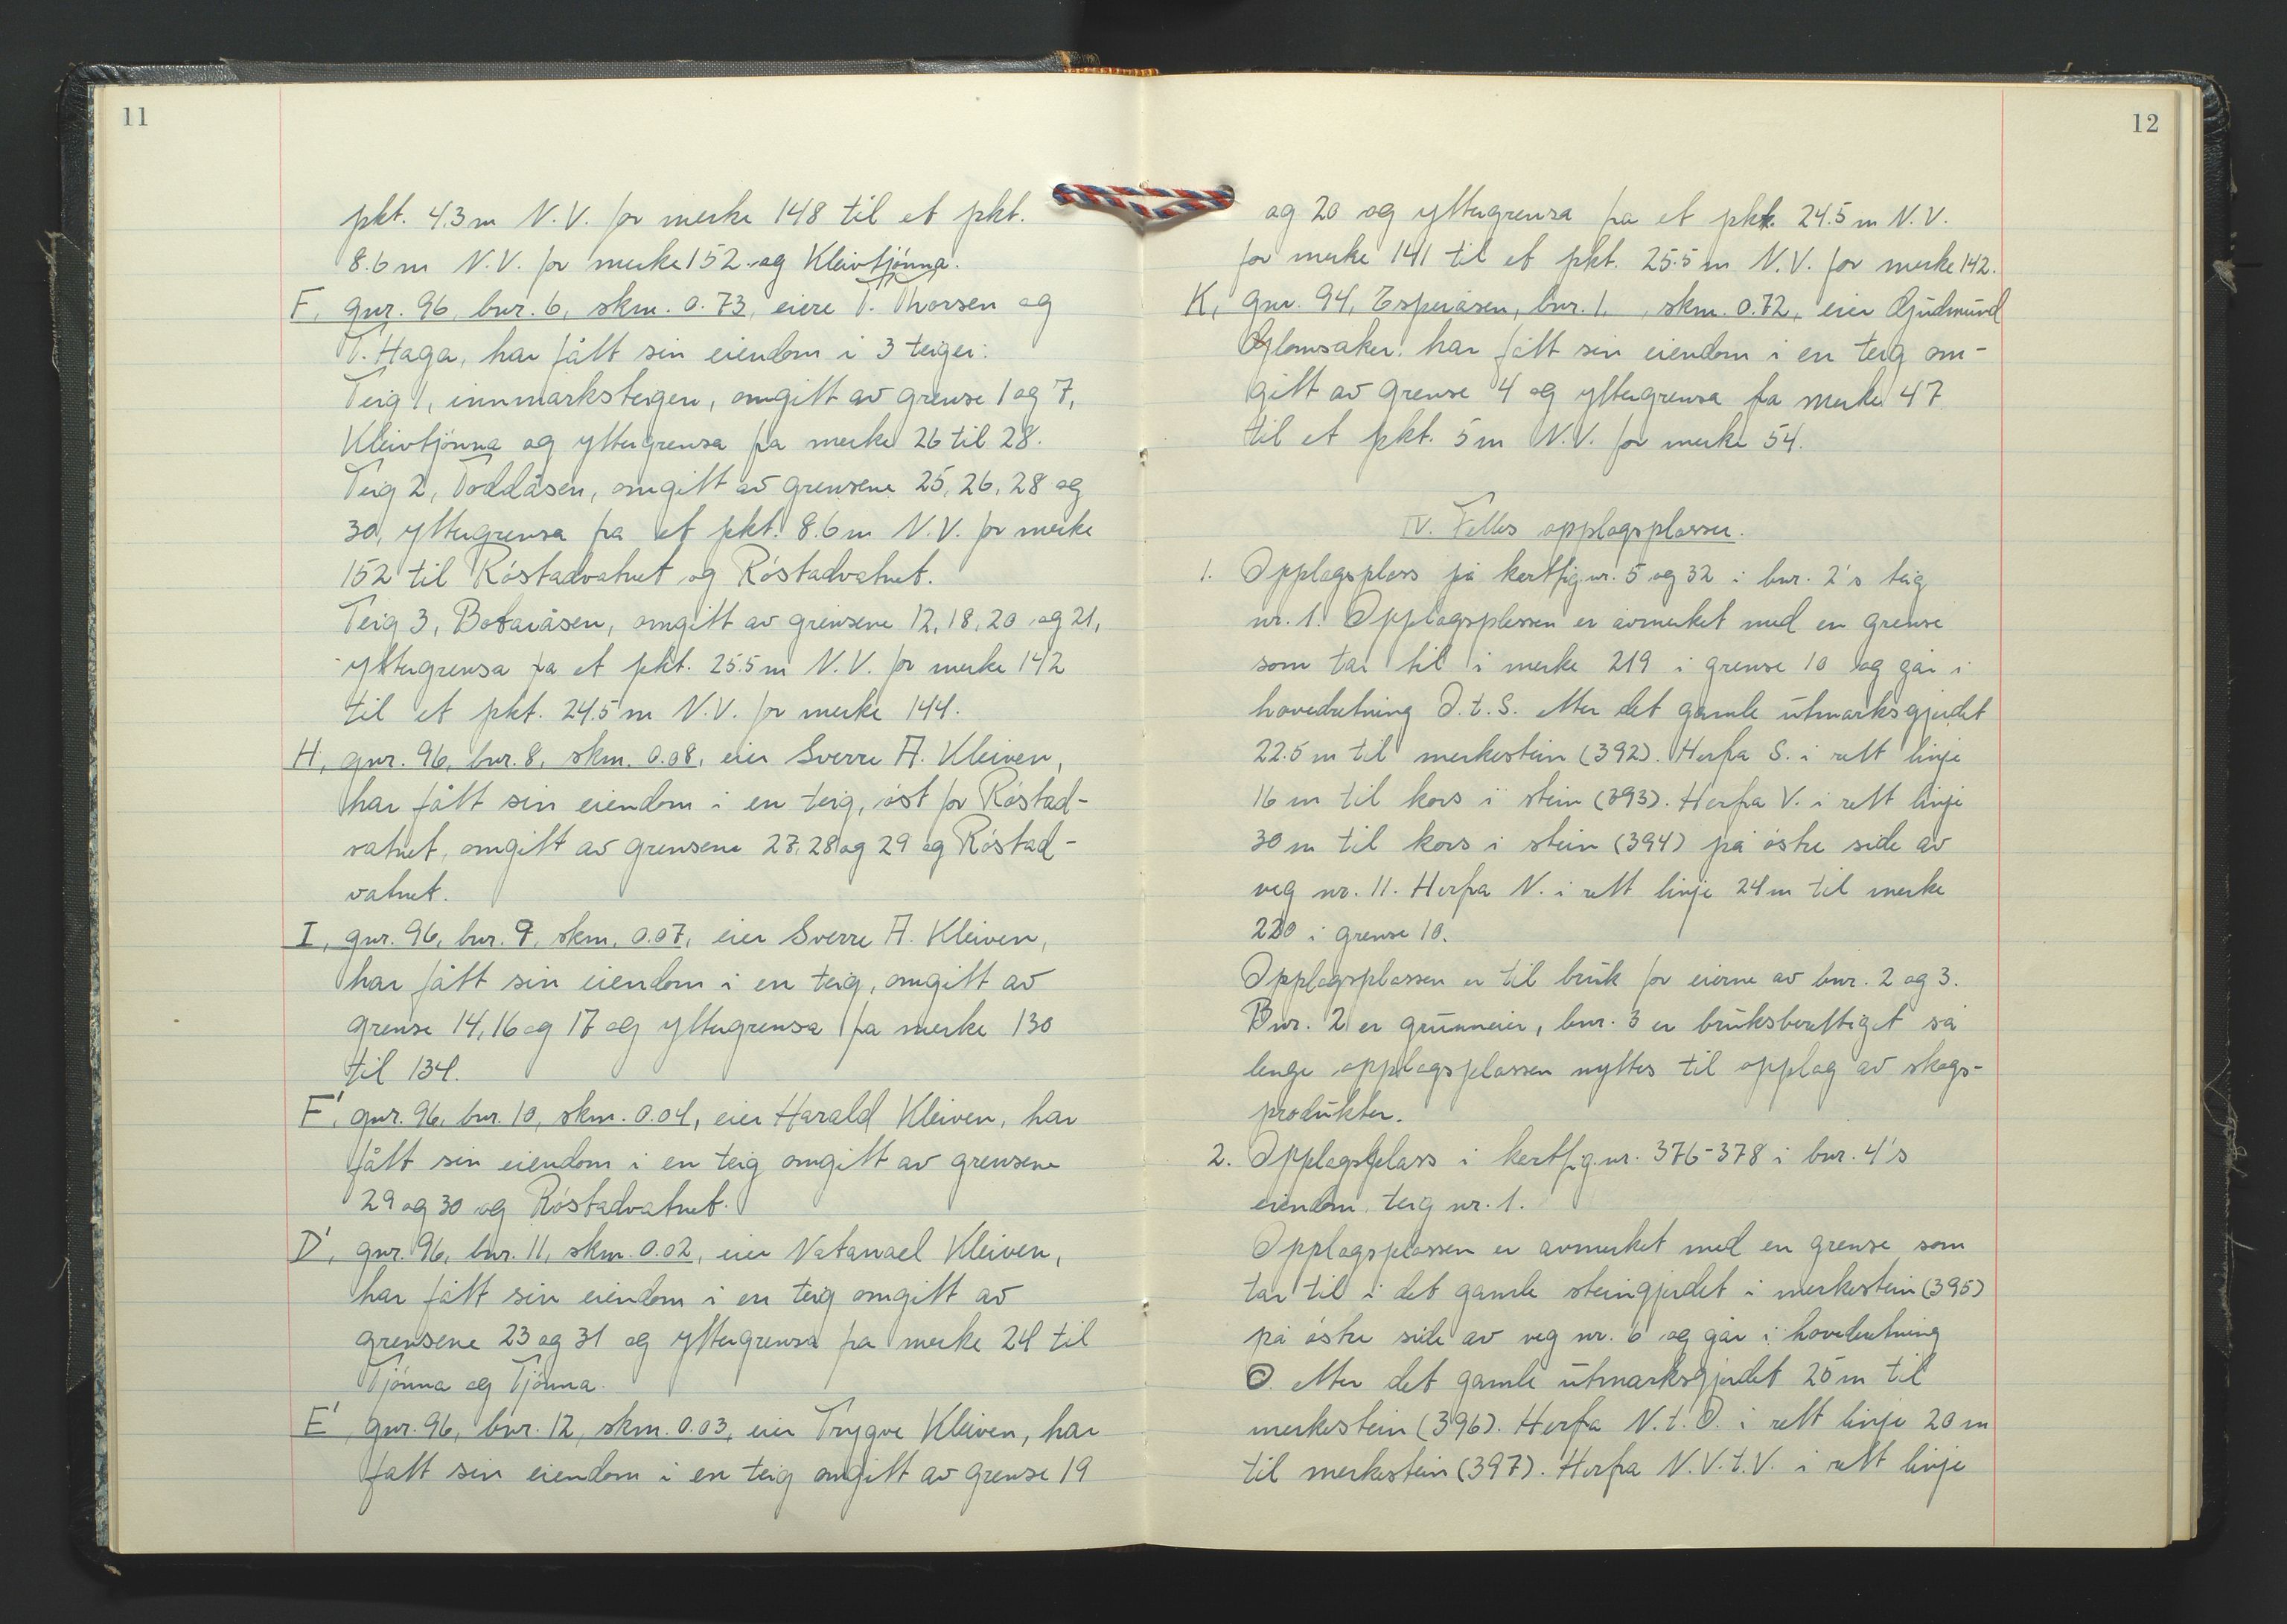 11
pkt. 43 m N.V. for merke 148 til et pkt.
8.6 m N.V. for merke 152 og Kleivtjönna.
F, gnr. 96, bnr. 6, skm. 0.73, eiere T. Thorsen og
T. Haga, har fått sin eiendom i 3 teiger:
Teig 1, innmarksteigen, omgitt av grense 1 og 7,
Kleivtjönna og yttergrensa fra merke 26 til 28.
Teig 2, Toddåsen, omgitt av grensene 25, 26, 28 og
30, yttergrensa fra et pkt. 8.6 m N.V. for merke
152 til Röstadvatnet og Röstadvatnet.
Teig 3, Botaråsen, omgitt av grensene 12, 18, 20 og 21,
yttergrensa fra et pkt. 25.5 m N.V. for merke 142
til et pkt. 24.5 m N.V. for merke 144.
H, gnr. 96, bnr. 8, skm. 0.08, eier Sverre A. Kleiven,
har fått sin eiendom i en teig, öst for Röstad-
vatnet, omgitt av grensene 27, 28 og 29 og Röstad-
vatnet.
I, gnr. 96, bnr. 9, skm. 0.07, eier Sverre A. Kleiven,
har fått sin eiendom i en teig, omgitt av
grense 14, 16 og 17 og yttergrensa fra merke 130
til 134.
F', gnr. 96, bnr. 10, skm. 0.04, eier Harald Kleiven, har
fått sin eiendom i en teig omgitt av grensene
29 og 30 og Röstadvatnet.
D', gnr. 96, bnr. 11, skm. 0.02, eier Natanael Kleiven,
har fått sin eiendom i en teig omgitt av
grensene 23 og 31 og yttergrensa fra merke 24 til
Tjönna og Tjönna.
E' gnr. 96, bnr. 12, skm. 0.03, eier Trygve Kleiven, har
fått sin eiendom i en teig omgitt av grense 19
12
og 20 og yttergrensa fra et pkt. 24.5 m N.V.
for merke 141 til et pkt. 25.5 m N.V. for merke 142.
K, gnr. 94, Esperåsen, bnr. 1, skm. 0.72, eier Gudmund
Glomsaker, har fått sin eiendom i en teig om-
gitt av grense 4 og yttergrensa fra merke 47
til et pkt. 5 m N.V. for merke 54.
IV. Felles opplagsplasser.
1. Opplagsplass på kartfig.nr. 5 og 32 i bnr. 2's teig
nr. 1. Opplagsplassen er avmerket med en grense
som tar til i merke 219 i grense 10 og går i
hovedretning Ö.t.S. etter det gamle utmarksgjerdet
22.5 m til merkestein (392). Herfra S. i rett linje
16 m til kors i stein (393). Herfra V. i rett linje
30 m til kors i stein (394) på östre side av
veg nr. 11. Herfra N. i rett linje 24 m til merke
220 i grense 10.
Opplagsplassen er til bruk for eierne av bnr. 2 og 3.
Bnr. 2 er grunneier, bnr. 3 er bruksberettiget så
lenge opplagsplassen nyttes til opplag av skogs-
produkter.
2. Opplagsplass i kartfig.nr. 376-378 i bnr. 4's
eiendom, teig nr. 1.
Opplagsplassen er avmerket med en grense som
tar til i det gamle steingjerdet i merkestein (395)
på östre side av veg nr. 6 og går i hovedretning
Ö. etter det gamle utmarksgjerdet 25 m til
merkestein (396). Herfra N.t.Ö. i rett linje 20 m
til merkestein (397). Herfra N.V.t.V. i rett linje